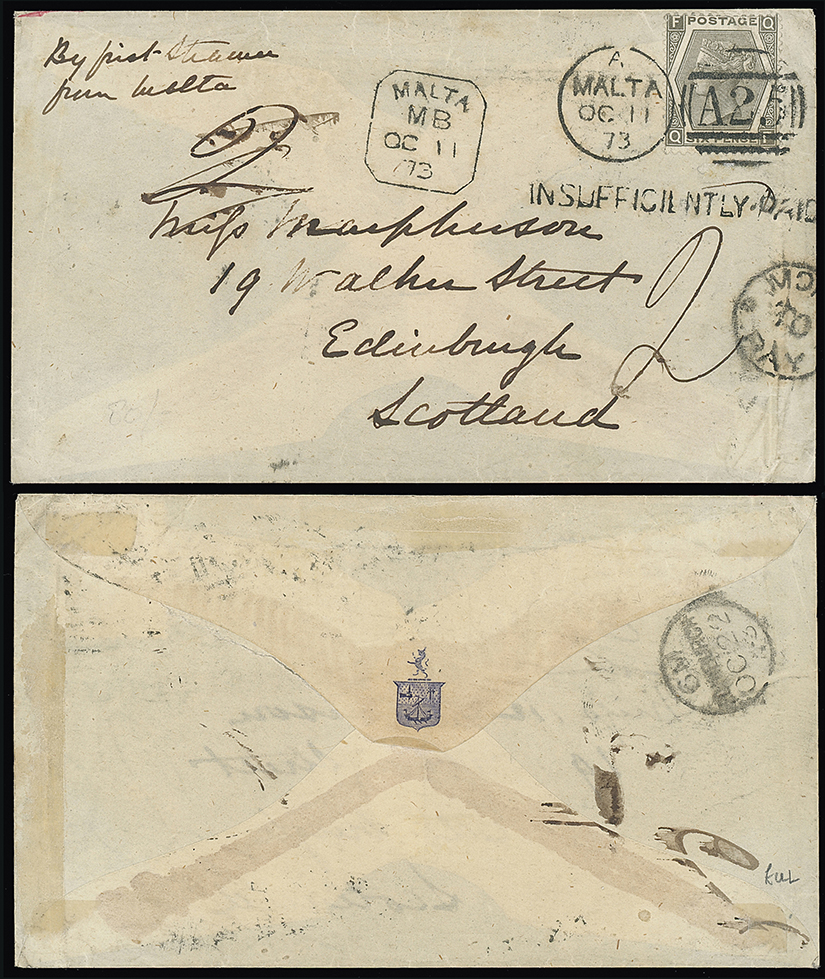 By first Steamer
from Malta
MALTA
MB
OC 11
73
A
MALTA
OC 11
73
F POSTAGE Q
A25
Q SIX PENCE F
INSUFFICIENTLY PAID
2
Miss Macpherson
19 Walker Street
Edinburgh
Scotland
2